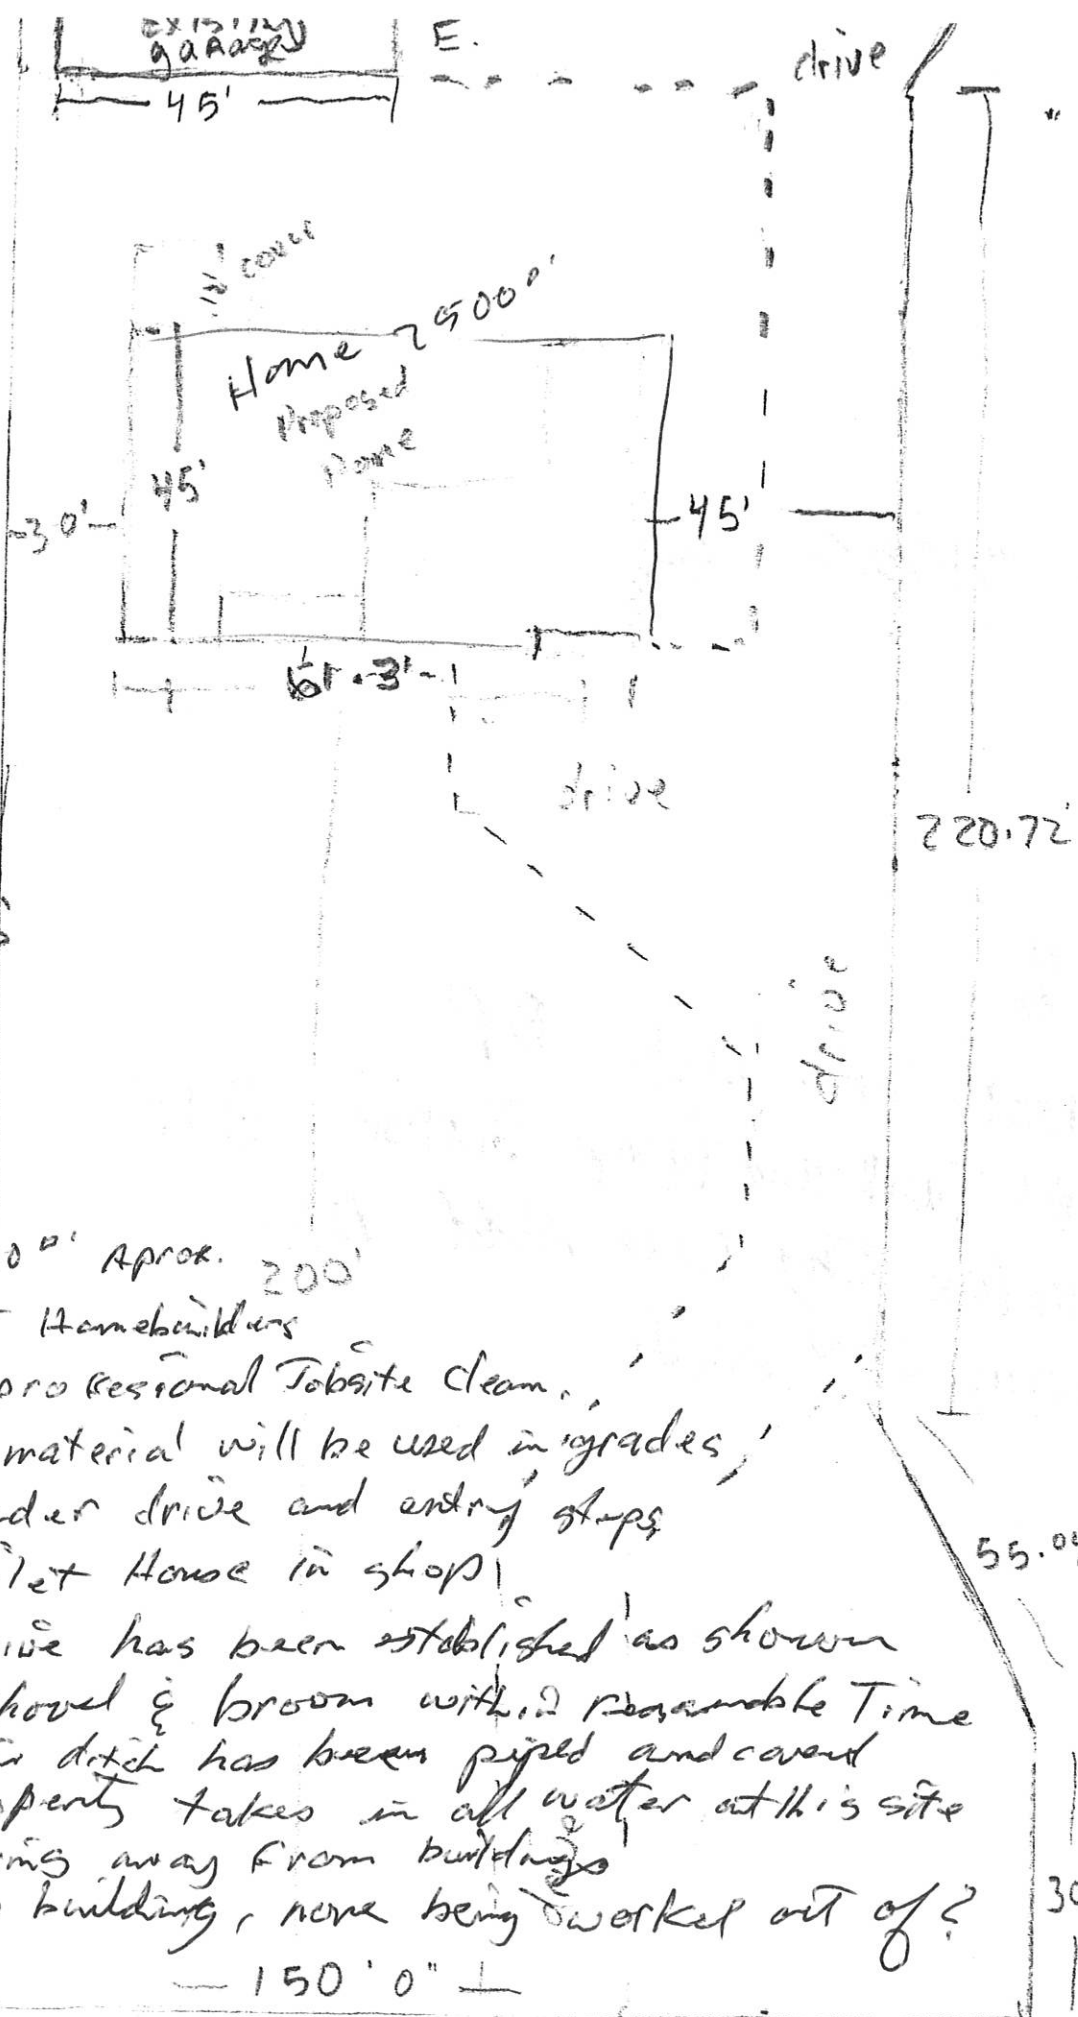 existing
garage
E.
drive
45'
cover
Home 2500
Proposed
Home
45'
30'
45'
61'-3'
drive
220.72'
drive
Aprox.
200'
Homebuilders
professional Jobsite Clean.
material will be used in grades,
der drive and entry steps
let House in shop
ive has been established as shown
hovel & broom within reasonable Time
ditch has been piped and coverd
perty takes in all water at this site
ing away from buildings
building, none being worked out of?
55.0
30
150'0"